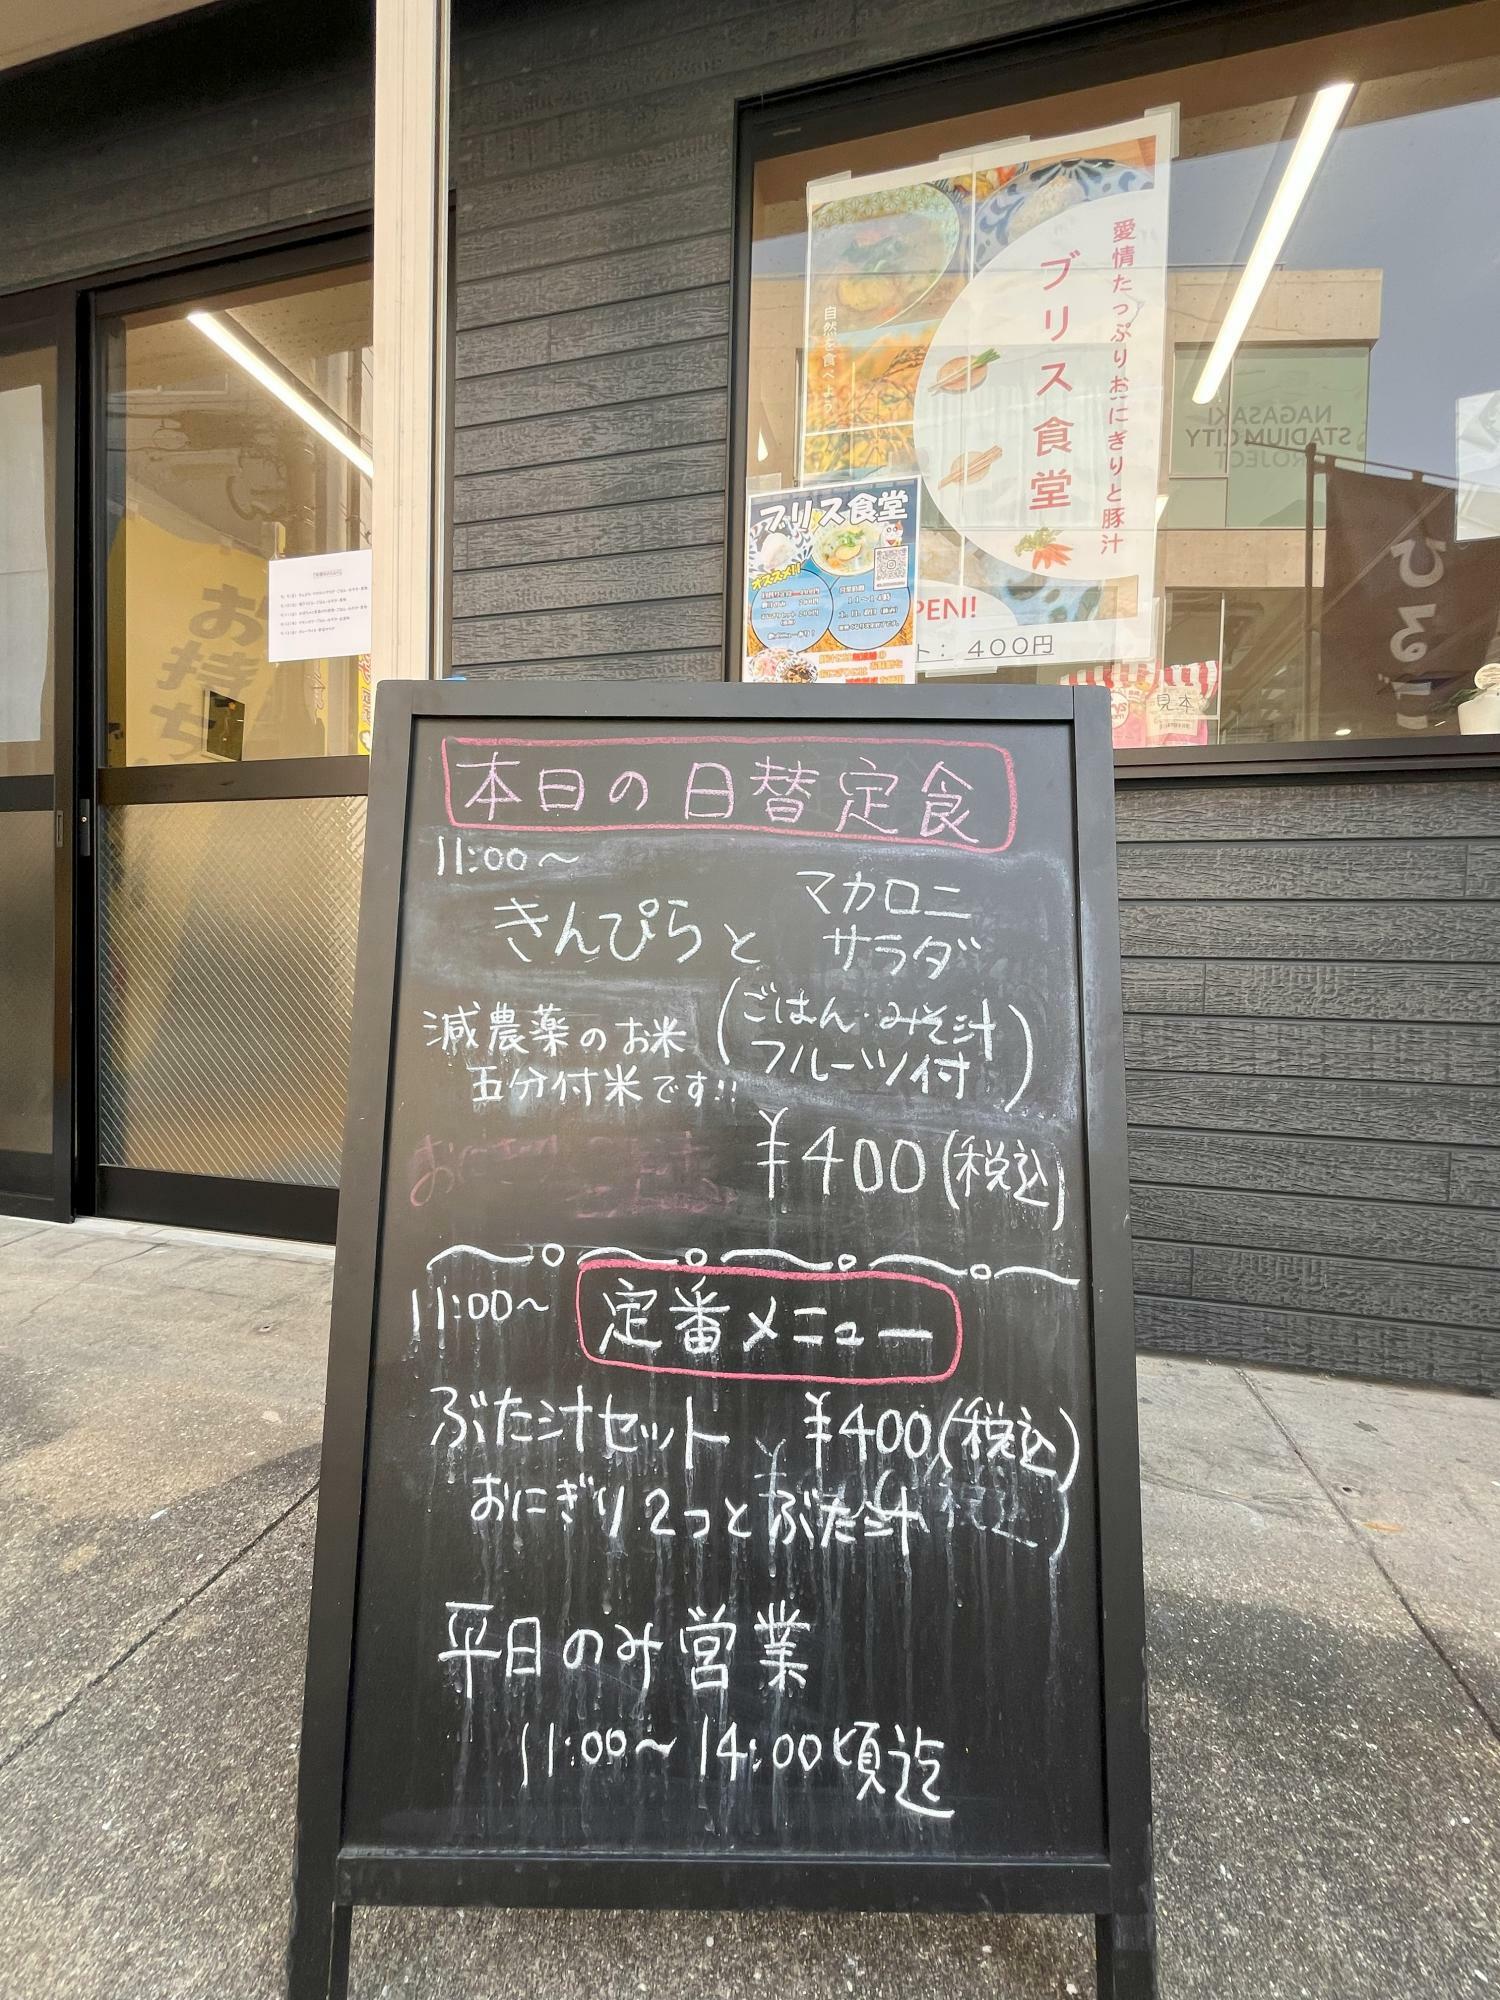 愛情たっぷりおにぎりと豚汁
ブリス食堂
自然を食べよう
ブリス食堂
オススメ!!
PEN!
ト: 400円
見本
NAGASAKI
STADIUM CITY
PROJECT
お持ち
本日の日替定食
11:00〜
きんぴらと マカロニ
サラダ
減農薬のお米 (ごはん・みそ汁
五分付米です!! フルーツ付)
¥400(税込)
11:00〜 定番メニュー
ぶた汁セット ¥400(税込)
おにぎり2つとぶた汁
平日のみ営業
11:00〜14:00頃迄